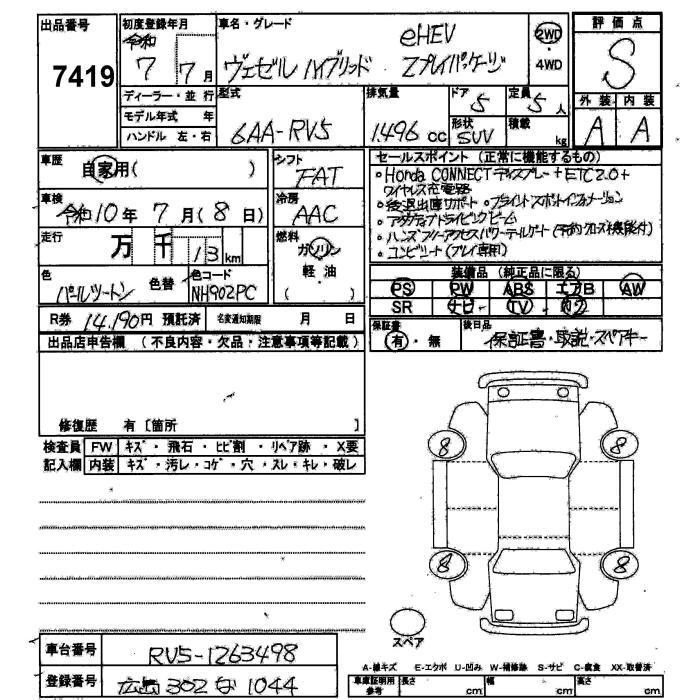 出品番号
7419
初度登録年月
令和
7 7月
車名・グレード
eHEV
ヴェゼル ハイブリッド Zプレイパッケージ
2WD
・
4WD
評価点
S
外装 内装
A A
ディーラー・並行
モデル年式 年
ハンドル 左・右
型式
6AA-RV5
排気量
1.496 cc
ドア
5
定員
5人
形状
SUV
積載
kg
車歴
自家用( )
シフト
FAT
車検
令和10年7月(8日)
冷房
AAC
走行
万 千 13 km
燃料
ガソリン
軽・油
( )
色
パールツートン
色替
色コード
NH902PC
R券 14,190円 預託済
名変通知期限 月 日
セールスポイント (正常に機能するもの)
・Honda CONNECTディスプレー+ETC2.0+
ワイヤレス充電器
・後退出庫サポート ・ブラインドスポットインフォメーション
・アダプティブドライビングビーム
・ハンズフリーアクセスパワーテールゲート(予約クローズ機能付)
・コンビシート(プレイ専用)
装備品 (純正品に限る)
PS PW ABS エアB AW
SR ナビ TV
保証書
有・無
後日品
保証書・取説・スペアキー
出品店申告欄 (不良内容・欠品・注意事項等記載)
修復歴 有〔箇所 〕
検査員
記入欄
FW キズ・飛石・ヒビ割・リペア跡・X要
内装 キズ・汚レ・コゲ・穴・スレ・キレ・破レ
8 8
8 8
スペア
車台番号
RV5-1263498
登録番号
広島 302 な 1044
A-線キズ E-エクボ U-凹み W-補修跡 S-サビ C-腐食 XX-取替済
車庫証明用
参考
長さ cm
幅 cm
高さ cm